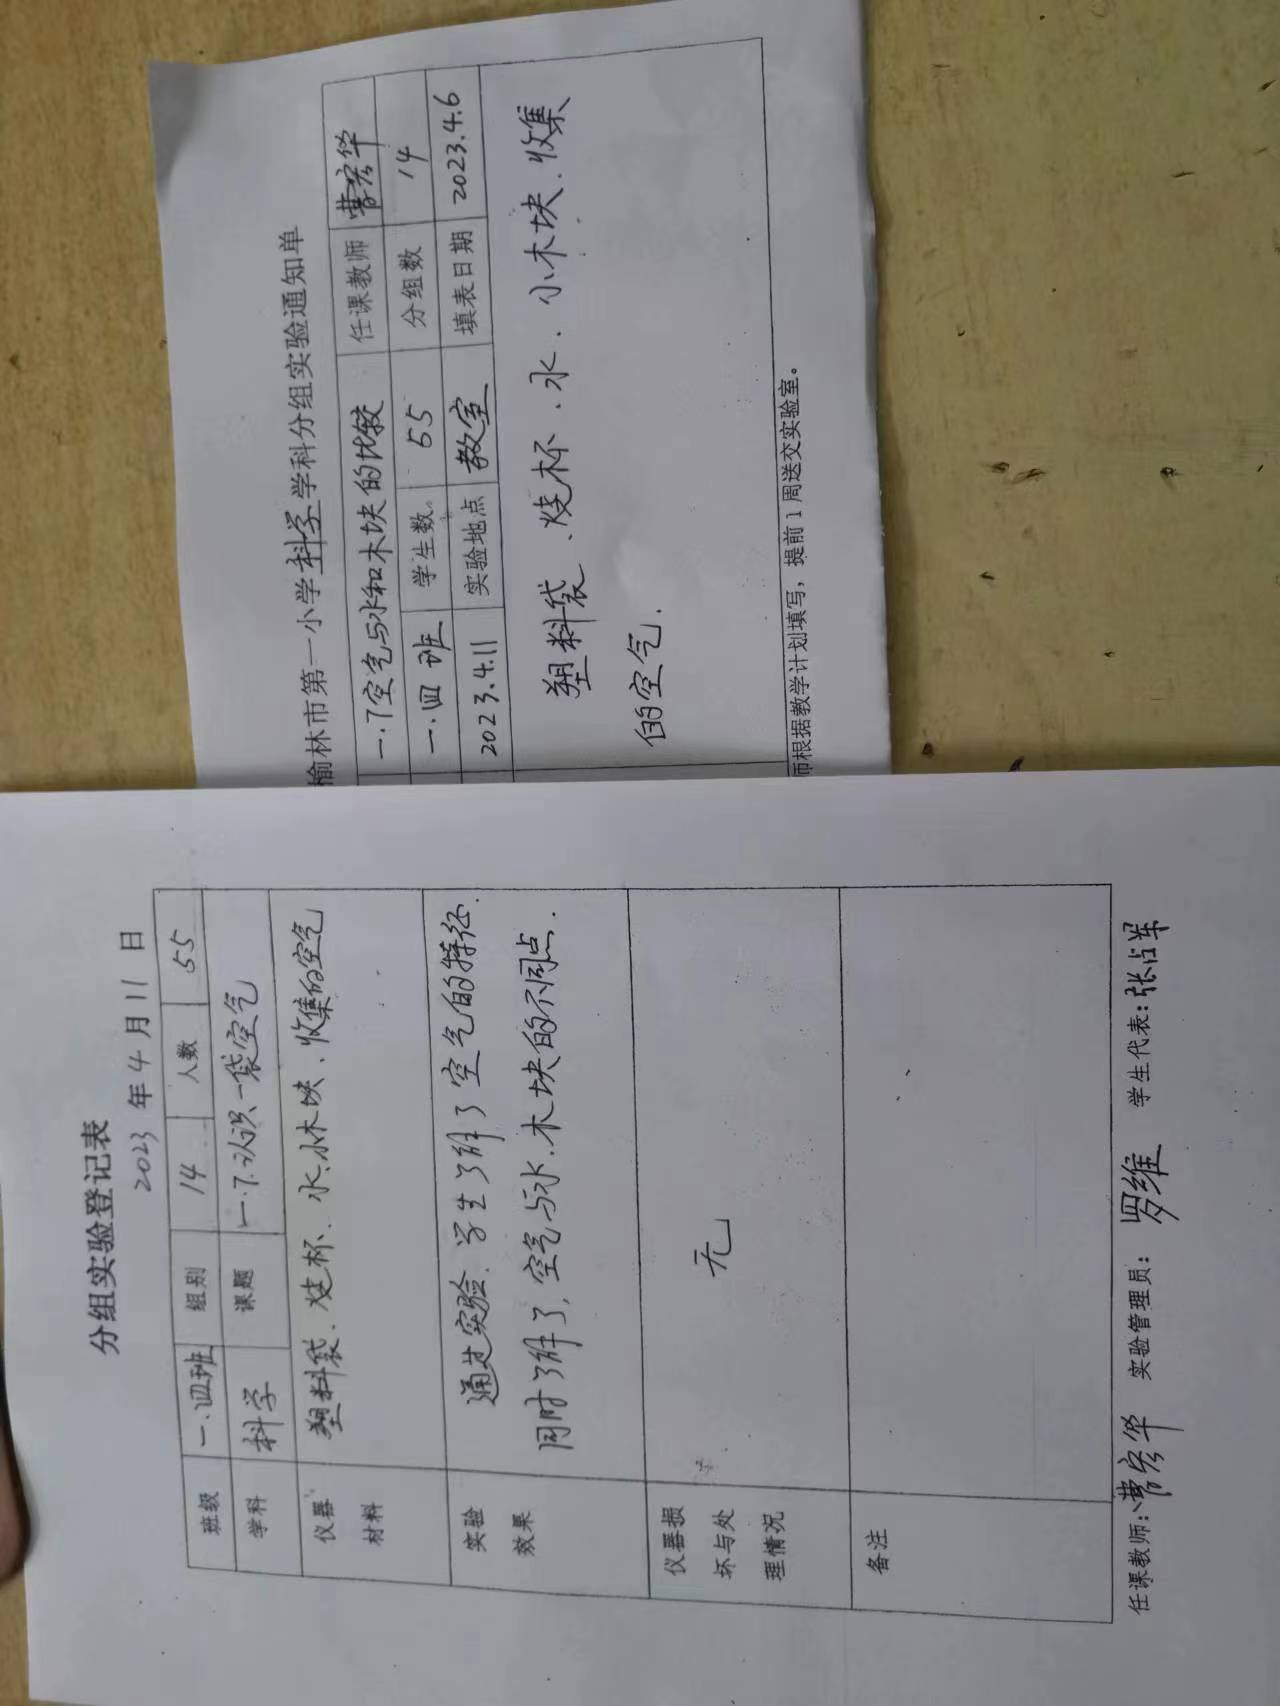 榆林市第一小学科学学科分组实验通知单
一.7空气与水和木块的比较 任课教师 曹宏华
一.四班 学生数 55 分组数 14
2023.4.11 实验地点 教室 填表日期 2023.4.6
塑料袋、烧杯、水、小木块、收集
的空气.
师根据教学计划填写，提前1周送交实验室。
分组实验登记表
2023年4月11日
班级 一.四班 组别 14 人数 55
学科 科学 课题 一.7.认识一袋空气
仪器材料 塑料袋、烧杯、水、小木块、收集的空气
实验效果 通过实验、学生了解了空气的特征.
同时了解了,空气与水、木块的不同点.
仪器损坏与处理情况 无
备注
任课教师：曹宏华 实验管理员：罗维 学生代表：张占军